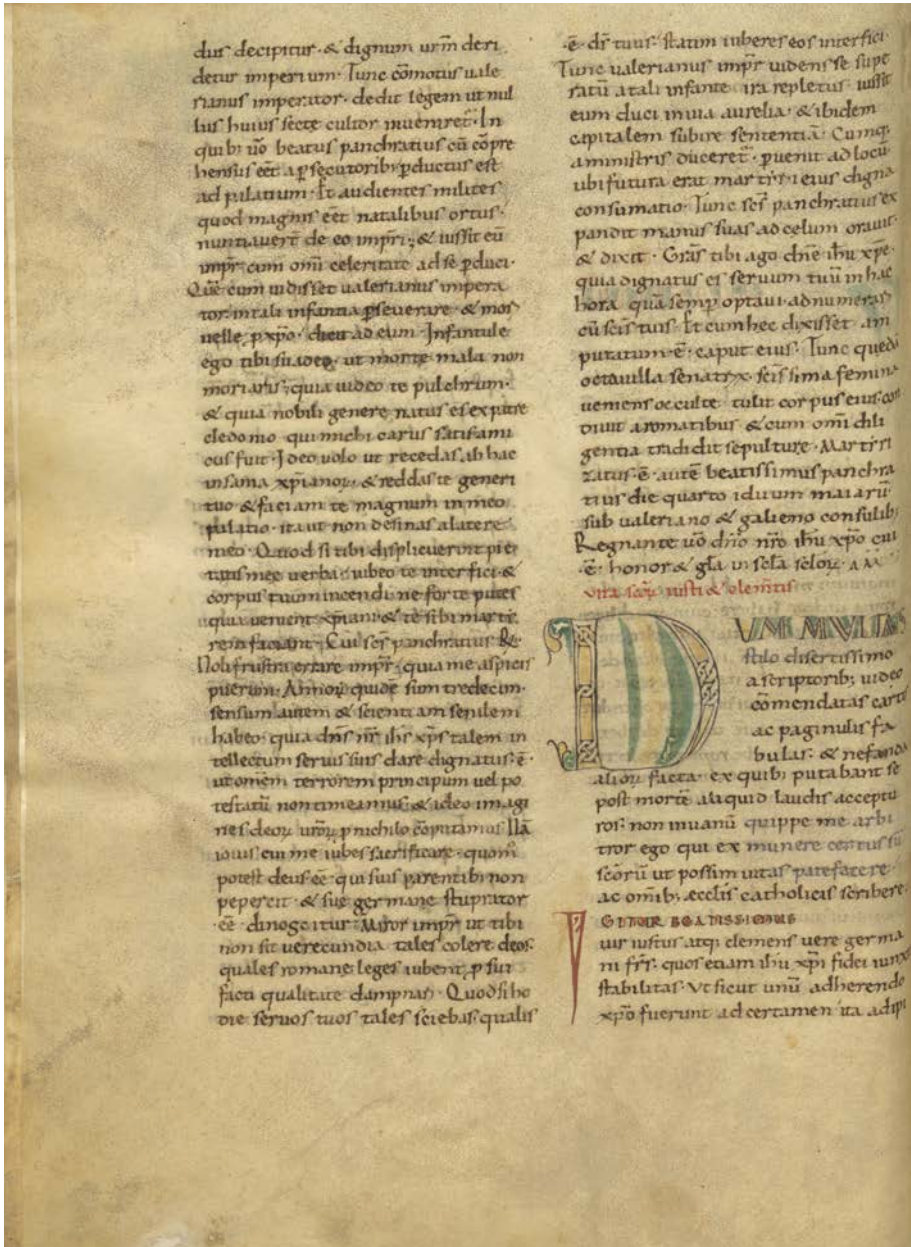 dius decipitur · & dignum urm̄ deri
detur imperium · Tunc cōmotus uale
rianus imperator · dedit legem ut nul
lus huius secte cultor inueniret̄ · In
quib; uō beatus panchratius cū cōpre
hensus eēt a ꝑsecutorib; ꝑductus est
ad palatium · Et audientes milites
quod magnis eēt natalibus ortus ·
nuntiauer̄t de eo impr̄i ; & iussit eū
impr̄ cum omī celeritate ad se ꝑduci ·
Quē cum uidisset ualerianus impera
tor in tali infantia ꝑseuerare · & mos
uelle ꝑ xp̄o · ad eum · Infantule
ego tibi suadeo ut morte mala non
moriaris ; quia uideo te pulchrum ·
& quia nobili genere natus es ex patre
cledonio qui michi carus satis ami
cus fuit · Ideo uolo ut recedas ab hac
insania xp̄ianoꝝ · & reddas te generi
tuo & faciam te magnum in meo
palatio · ita ut non desinas a latere
meo · Quod si tibi displicuerint pie
tatis mee uerba · iubeo te interfici · &
corpus tuum incendi · ne forte putes
quia uenient xp̄iani · & te sibi marti
rem faciant · Cui scs̄ panchratius ·
Noli frustra errare impr̄ · quia me aspicis
puerum · Annoꝝ quidē sum tredecim ·
sensum autem & scientiam senilem
habeo · quia dns̄ nr̄ ihs̄ xps̄ talem in
tellectum seruis suis dare dignatus · ē ·
ut omem terrorem principum uel po
testatū non timeamus ; & ideo imagi
nes deoꝝ uroꝝ ꝓ nichilo cōputamus Nā
iouis cui me iubes sacrificare · quom̄
potest deus eē · qui suis parentib; non
pepercit · & sue germane stuprator
eē · dinoscitur · Miror impr̄ ut tibi
non sit uerecundia tales colere deos ·
quales romane leges iubent · ꝓ sui
facti qualitate dampnari · Quod si ho
die seruos tuos tales sciebas · qualis
· ē · ds̄ tuus · statim iuberes eos interfici ·
Tunc ualerianus impr̄ uidens se supe
ratū a tali infante · ira repletus · iussit
eum duci in uia aurelia · & ibidem
capitalem subire sententiā · Cumq;
a ministris duceret̄ · ꝑuenit ad locū
ubi futura erat martirii eius digna
consumatio · Tunc scs̄ panchratius ex
pandit manus suas ad celum orauit
& dixit · Grās tibi ago dn̄e ihū xp̄e ·
quia dignatus es seruum tuū in hac
hora quā semp optaui · adnumeras
cū scīs tuis · Et cum hec dixisset · am
putatum · ē · caput eius · Tunc quedā
octauilla senatrix · scīssima femina
ueniens occulte · tulit corpus eius · con
diuit aromatibus & cum omī dili
gentia tradidit sepulture · Martiri
zatus · ē · autē beatissimus panchra
tius die quarto iduum maiarū
sub ualeriano & galieno consulib;
Regnante uō dn̄o nr̄o ihū xp̄o cui
· ē · honor & gl̄a in scl̄a scl̄oꝝ ·
Vita scōꝝ iusti & clem̄tis
DUM MULTAS
stilo disertissimo
a scriptorib; uideo
cōmendatas cartis
ac paginulis fa
bulas · & nefanda
alioꝝ facta · ex quib; putabant se
post mortē aliquid laudis acceptu
ros · non inuanū quippe me arbi
tror ego qui ex munere certus sū
scōrū ut possim uitas patefacere ·
ac omib; æcclīs catholicis scribere ·
IGITUR BEATISSIMUS
uir iustus atq; clemens uere germa
ni frs̄ · quos etiam ihū xp̄i fidei iunxit
stabilitas · Vt sicut unū adherendo
xp̄o fuerunt ad certamen ita adipi